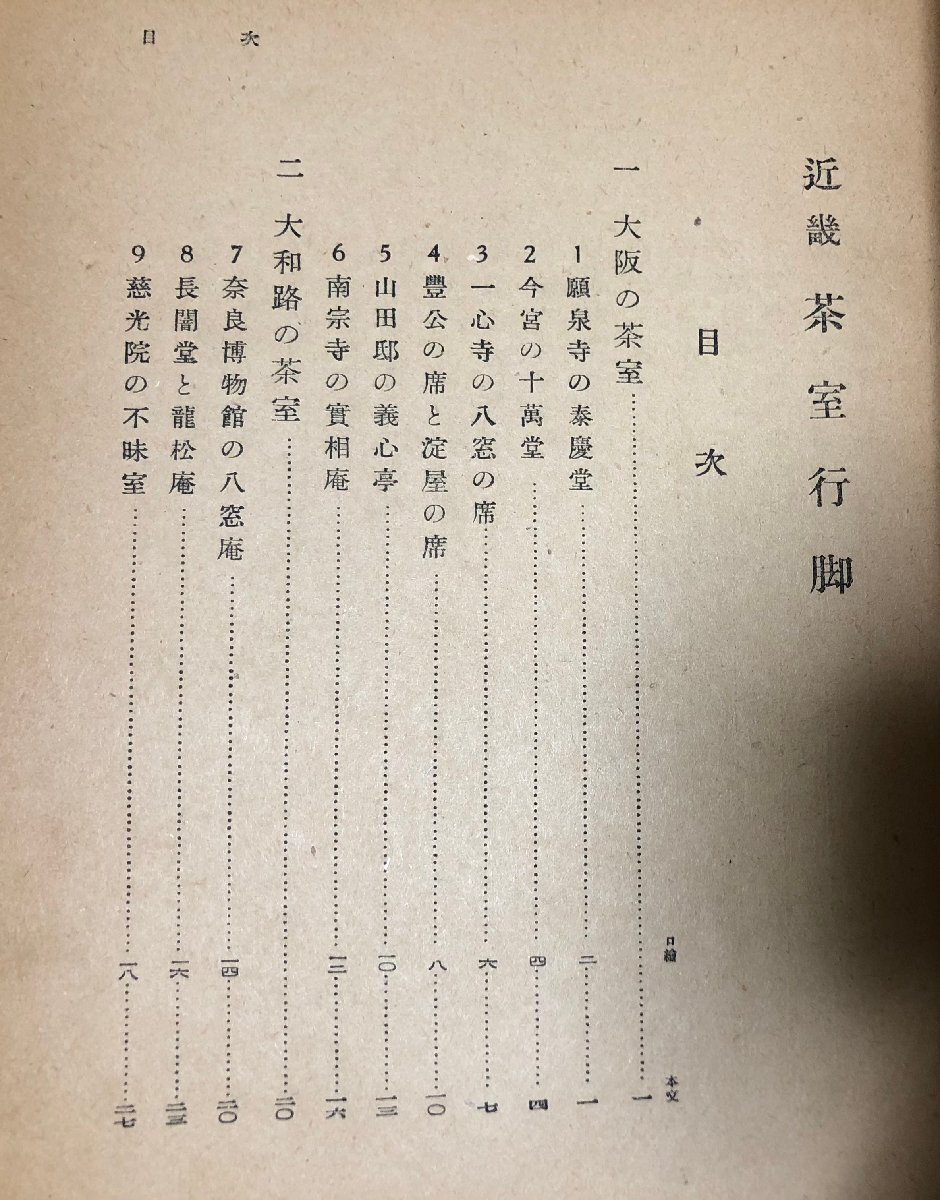 目次
近畿茶室行脚
目次
口繪 本文
一 大阪の茶室……一
1 願泉寺の泰慶堂……二……一
2 今宮の十萬堂……四……四
3 一心寺の八窓の席……六……七
4 豐公の席と淀屋の席……八……一〇
5 山田邸の義心亭……一〇……一三
6 南宗寺の實相庵……一二……一六
二 大和路の茶室……二〇
7 奈良博物館の八窓庵……一四……二〇
8 長闇堂と龍松庵……一六……二三
9 慈光院の不昧室……一八……二七